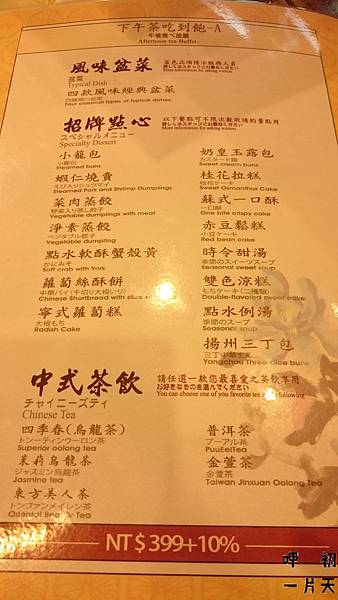 下午茶吃到飽-A
午後食べ放題
Afternoon tea-Buffet-
風味盆菜
盆菜
Typical Dish
四款風味經典盆菜
Four classical types of typical dishes.
菜色品項請洽服務人員
詳しくはスタッフにお尋ねください
More information for asking waiters.
招牌點心
スペシャルメニュー
Specialty Dissert
以下餐點可不限次數歡請酌量點用
詳しくはスタッフにお尋ねください
More information for asking waiters.
小籠包
小籠包
Steamed buns
蝦仁燒賣
えび入りシュウマイ
Steamed Pork and Shrimp Dumplings
菜肉蒸餃
野菜入り蒸し餃子
Vegetable dumplings with meat
淨素蒸餃
ベジタブル餃子
Vegetable dumpling
點水軟酥蟹殼黃
かにみそ
Soft crab with York
蘿蔔絲酥餅
中華パイ(千切り大根いり)
Chinese Shortbread with slice of
寧式蘿蔔糕
大根もち
Radish Cake
奶皇玉露包
カスタード饅
Sweet cream buns
桂花拉糕
桂花ケーキ
Sweet Osmanthus Cake
蘇式一口酥
一口酥
One bite crispy cake
赤豆鬆糕
小豆ケーキ
Red bean cake
時令甜湯
季節のスイーツスープ
Seasonal sweet soup
雙色涼糕
もちケーキ(二種類)
Double-flavored sweet cake
點水例湯
季節のスープ
Seasonal soup
揚州三丁包
三丁中華まん
Yangzhou Three-dice buns
中式茶飲
チャイニーズティ
Chinese Tea
請任選一款您最喜愛之茶飲享用
お好きなものを選んでください
You can choose one of you favorite tea following
四季春(烏龍茶)
トンーティンウーロン茶
Superior oolong tea
茉莉烏龍茶
ジャスミン烏龍茶
Jasmine tea
東方美人茶
トンファンメイレン茶
Oriental Beauty Tea
普洱茶
プーアル茶
PuuEelTea
金萱茶
金萱茶
Taiwan Jinxuan Oolong Tea
NT$399+10%
呷 初
一片天